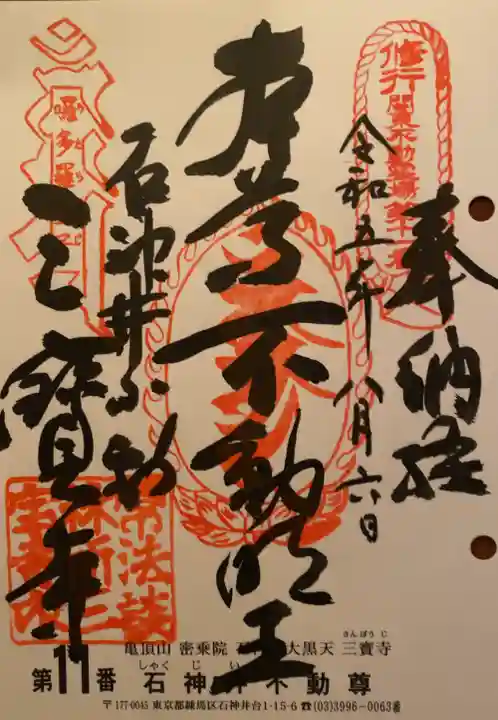 奉納経
令和五年八月六日
本尊不動明王
石神井不動
三寳寺
修行
関東不動霊場第十一番
亀頂山 密乗院 大黒天 三寳寺
さんぽうじ
しゃくじい
第11番 石神井不動尊
〒177-0045 東京都練馬区石神井台1-15-6 ☎(03)3996-0063番